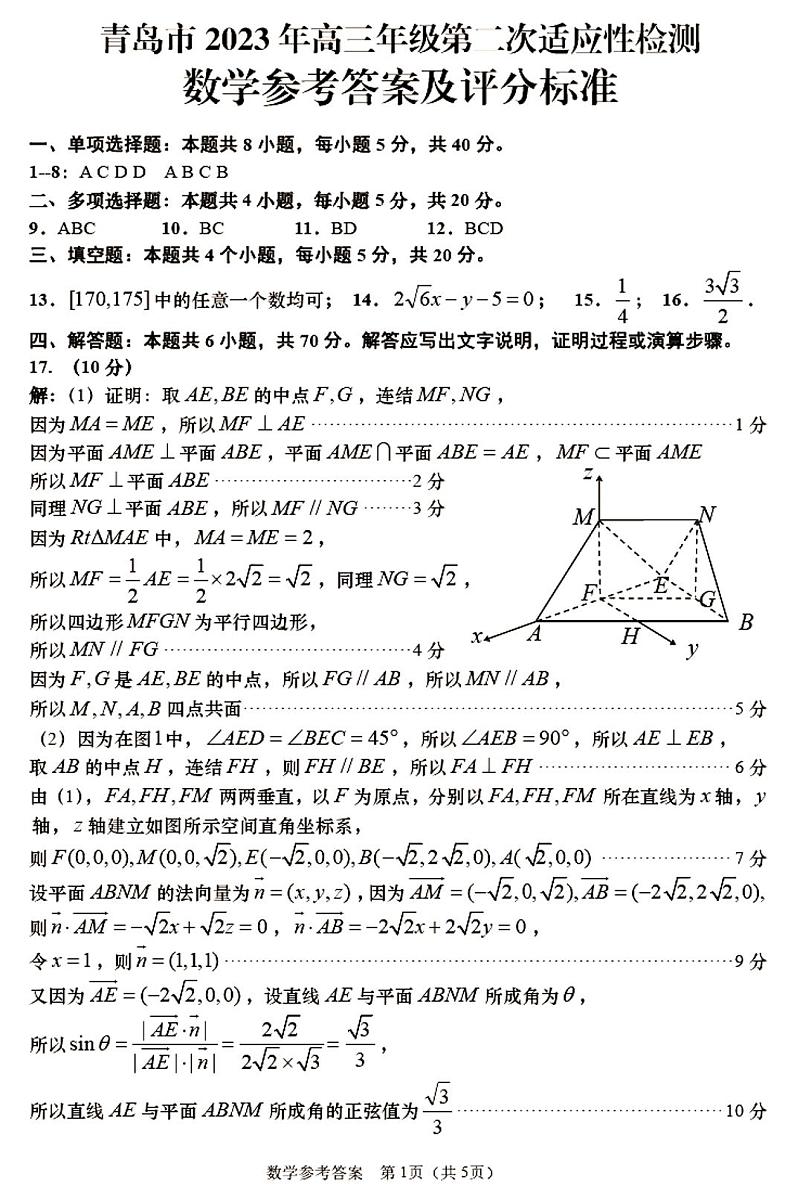 青岛市 2023 年高三年级第二次适应性检测
数学参考答案及评分标准
一、单项选择题：本题共 8 小题，每小题 5 分，共 40 分。
1--8：A C D D A B C B
二、多项选择题：本题共 4 小题，每小题 5 分，共 20 分。
9．ABC 10．BC 11．BD 12．BCD
三、填空题：本题共 4 个小题，每小题 5 分，共 20 分。
13．[170,175] 中的任意一个数均可； 14．2√6x − y − 5 = 0； 15．1/4； 16．3√3/2．
四、解答题：本题共 6 小题，共 70 分。解答应写出文字说明，证明过程或演算步骤。
17．（10 分）
解：（1）证明：取 AE, BE 的中点 F, G，连结 MF, NG，
因为 MA = ME，所以 MF ⊥ AE ………………1 分
因为平面 AME ⊥ 平面 ABE，平面 AME ∩ 平面 ABE = AE，MF ⊂ 平面 AME
所以 MF ⊥ 平面 ABE ………………2 分
同理 NG ⊥ 平面 ABE，所以 MF // NG ………3 分
因为 RtΔMAE 中，MA = ME = 2，
所以 MF = 1/2 AE = 1/2 × 2√2 = √2，同理 NG = √2，
所以四边形 MFGN 为平行四边形，
所以 MN // FG ………………4 分
z
M
N
F
E
G
x
A
H
y
B
因为 F, G 是 AE, BE 的中点，所以 FG // AB，所以 MN // AB，
所以 M, N, A, B 四点共面………………5 分
（2）因为在图1中，∠AED = ∠BEC = 45°，所以 ∠AEB = 90°，所以 AE ⊥ EB，
取 AB 的中点 H，连结 FH，则 FH // BE，所以 FA ⊥ FH ………………6 分
由（1），FA, FH, FM 两两垂直，以 F 为原点，分别以 FA, FH, FM 所在直线为 x 轴，y
轴，z 轴建立如图所示空间直角坐标系，
则 F(0,0,0), M(0,0,√2), E(−√2,0,0), B(−√2,2√2,0), A(√2,0,0) ………………7 分
设平面 ABNM 的法向量为 n⃗ = (x, y, z)，因为 AM⃗ = (−√2,0,√2), AB⃗ = (−2√2,2√2,0),
则 n⃗·AM⃗ = −√2x + √2z = 0，n⃗·AB⃗ = −2√2x + 2√2y = 0，
令 x = 1，则 n⃗ = (1,1,1) ………………9 分
又因为 AE⃗ = (−2√2,0,0)，设直线 AE 与平面 ABNM 所成角为 θ，
所以 sin θ = |AE⃗·n⃗| / |AE⃗|·|n⃗| = 2√2 / 2√2×√3 = √3/3，
所以直线 AE 与平面 ABNM 所成角的正弦值为 √3/3 ………………10 分
数学参考答案 第 1页（共 5页）